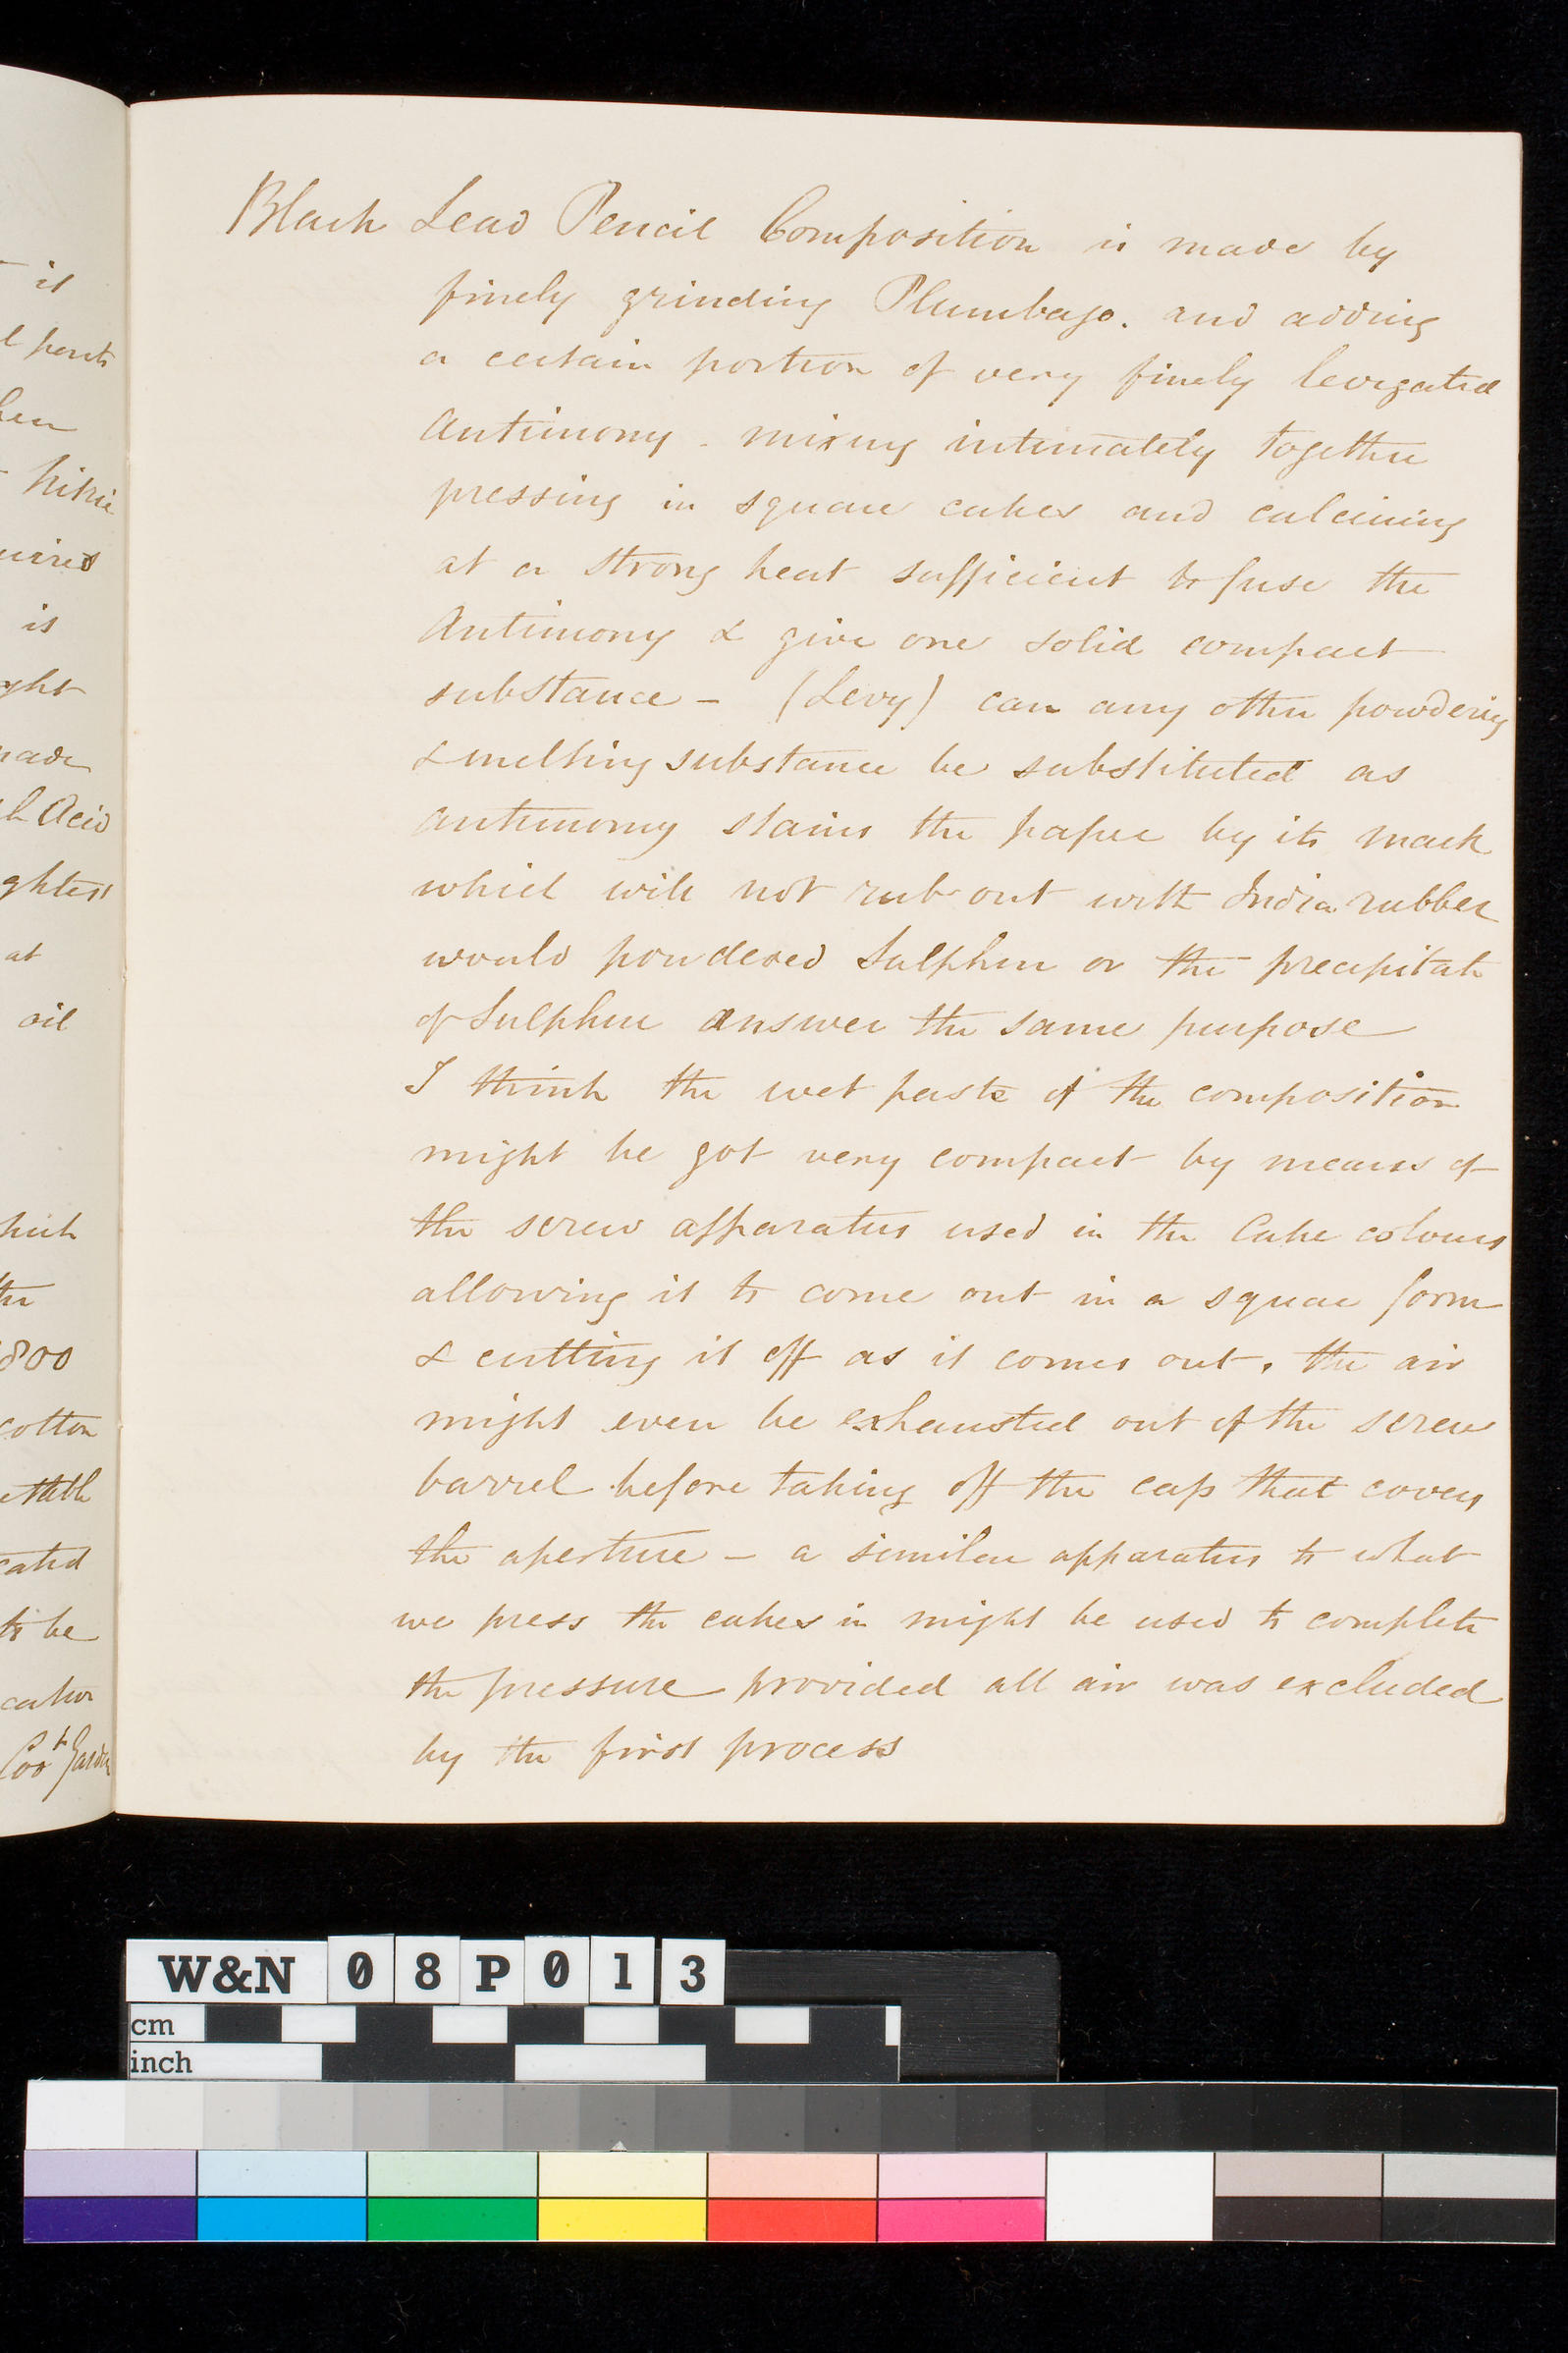 it
l
hen
Nitric
uired
is
ght
made
Acid
ghtest
at
oil
hich
the
1800
cotton
cated
to be
Black Lead Pencil Composition is made by
finely grinding Plumbago. and adding
a certain portion of very finely levigated
Antimony - mixing intimately together
pressing in square cakes and calcining
at a strong heat sufficient to fuse the
Antimony & give one solid compact
substance - (Levy) can any other powdering
& melting substance be substituted as
antimony stains the paper by its mark
which will not rub out with India rubber
would powdered Sulphur or the precipitate
of Sulphur answer the same purpose
I think the wet paste of the composition
might be got very compact by means of
the screw apparatus used in the Cake colours
allowing it to come out in a square form
& cutting it off as it comes out, the air
might even be exhausted out of the screw
barrel before taking off the cap that covers
the aperture - a similar apparatus to what
we press the cakes in might be used to complete
the pressure provided all air was excluded
by the first process
W&N 08P013
cm
inch